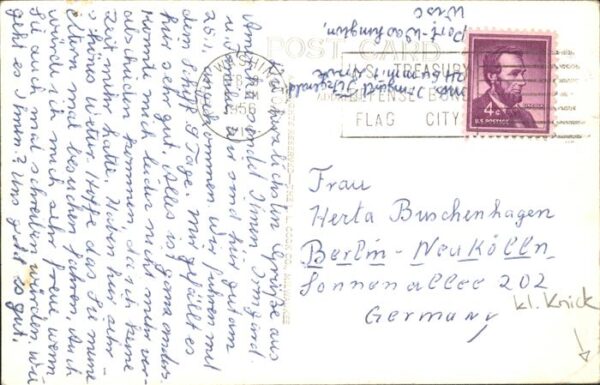 POST CARD
WASHIN
1956
TREASURY
DEFENSE BO
FLAG CITY
4¢
U.S. POSTAGE
Port Washington,
Wisc
Frau
Herta Buschenhagen
Berlin-Neukölln
Sonnenallee 202
Germany
kl. Knick
Die herzlichsten Grüße aus
Amerika sendet Ihnen Irmgard.
Wir sind hier gut am
25.1. angekommen. Wir fuhren mit
dem Schiff 9 Tage. Mir gefällt es
hier sehr gut. Alles is ganz anders.
Konnte mich leider nicht mehr ver-
abschieden kommen da ich keine
Zeit mehr hatte. Haben hier sehr
schönes Wetter. Hoffe das Sie meine
Eltern mal besuchen fahren. Auch
würde ich mich sehr freue wenn
Sie auch mal schreiben würden. Wie
geht es Ihnen? Uns geht es gut.